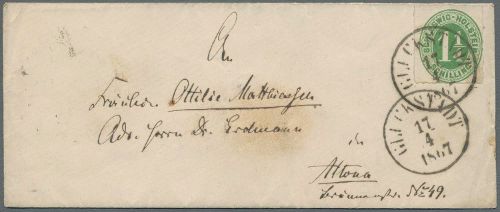 An
Fräulein Ottilie Matthiessen
Adr. Herrn Dr. Erdmann
in
Altona
№ 49.
SCHLESWIG-HOLSTEIN
1¼
GLÜCKSTADT
17
4
1867
GLÜCKSTADT
17
1867